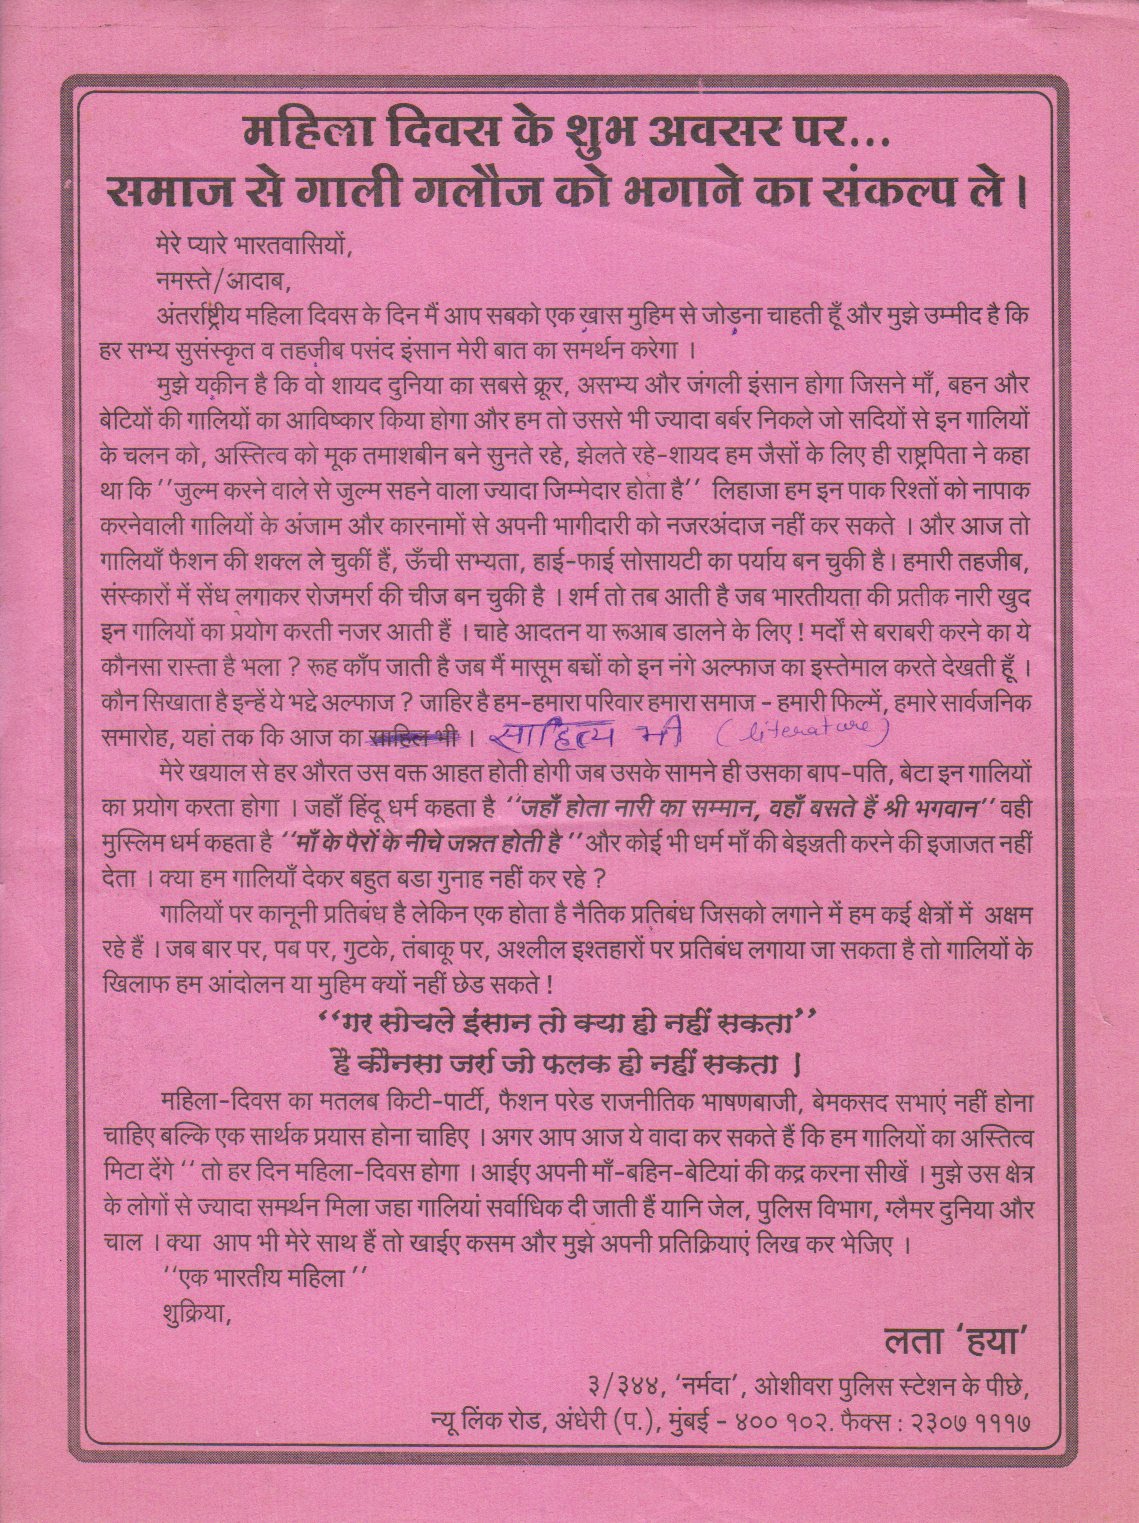 महिला दिवस के शुभ अवसर पर...
समाज से गाली गलौज को भगाने का संकल्प ले ।
मेरे प्यारे भारतवासियों,
नमस्ते/आदाब,
अंतर्राष्ट्रीय महिला दिवस के दिन मैं आप सबको एक खास मुहिम से जोड़ना चाहती हूँ और मुझे उम्मीद है कि
हर सभ्य सुसंस्कृत व तहजीब पसंद इंसान मेरी बात का समर्थन करेगा ।
मुझे यकीन है कि वो शायद दुनिया का सबसे क्रूर, असभ्य और जंगली इंसान होगा जिसने माँ, बहन और
बेटियों की गालियों का आविष्कार किया होगा और हम तो उससे भी ज्यादा बर्बर निकले जो सदियों से इन गालियों
के चलन को, अस्तित्व को मूक तमाशबीन बने सुनते रहे, झेलते रहे-शायद हम जैसों के लिए ही राष्ट्रपिता ने कहा
था कि ''जुल्म करने वाले से जुल्म सहने वाला ज्यादा जिम्मेदार होता है'' लिहाजा हम इन पाक रिश्तों को नापाक
करनेवाली गालियों के अंजाम और कारनामों से अपनी भागीदारी को नजरअंदाज नहीं कर सकते । और आज तो
गालियाँ फैशन की शक्ल ले चुकीं हैं, ऊँची सभ्यता, हाई-फाई सोसायटी का पर्याय बन चुकी है। हमारी तहजीब,
संस्कारों में सेंध लगाकर रोजमर्रा की चीज बन चुकी है । शर्म तो तब आती है जब भारतीयता की प्रतीक नारी खुद
इन गालियों का प्रयोग करती नजर आती हैं । चाहे आदतन या रूआब डालने के लिए ! मर्दों से बराबरी करने का ये
कौनसा रास्ता है भला ? रूह काँप जाती है जब मैं मासूम बच्चों को इन नंगे अल्फाज का इस्तेमाल करते देखती हूँ ।
कौन सिखाता है इन्हें ये भद्दे अल्फाज ? जाहिर है हम-हमारा परिवार हमारा समाज - हमारी फिल्में, हमारे सार्वजनिक
समारोह, यहां तक कि आज का साहिल भी । साहित्य भी (literature)
मेरे खयाल से हर औरत उस वक्त आहत होती होगी जब उसके सामने ही उसका बाप-पति, बेटा इन गालियों
का प्रयोग करता होगा । जहाँ हिंदू धर्म कहता है ''जहाँ होता नारी का सम्मान, वहाँ बसते हैं श्री भगवान'' वही
मुस्लिम धर्म कहता है ''माँ के पैरों के नीचे जन्नत होती है '' और कोई भी धर्म माँ की बेइज्जती करने की इजाजत नहीं
देता । क्या हम गालियाँ देकर बहुत बडा गुनाह नहीं कर रहे ?
गालियों पर कानूनी प्रतिबंध है लेकिन एक होता है नैतिक प्रतिबंध जिसको लगाने में हम कई क्षेत्रों में अक्षम
रहे हैं । जब बार पर, पब पर, गुटके, तंबाकू पर, अश्लील इश्तहारों पर प्रतिबंध लगाया जा सकता है तो गालियों के
खिलाफ हम आंदोलन या मुहिम क्यों नहीं छेड सकते !
''गर सोचले इंसान तो क्या हो नहीं सकता''
है कौनसा जर्रा जो फलक हो नहीं सकता ।
महिला-दिवस का मतलब किटी-पार्टी, फैशन परेड राजनीतिक भाषणबाजी, बेमकसद सभाएं नहीं होना
चाहिए बल्कि एक सार्थक प्रयास होना चाहिए । अगर आप आज ये वादा कर सकते हैं कि हम गालियों का अस्तित्व
मिटा देंगे '' तो हर दिन महिला-दिवस होगा । आईए अपनी माँ-बहिन-बेटियां की कद्र करना सीखें । मुझे उस क्षेत्र
के लोगों से ज्यादा समर्थन मिला जहा गालियां सर्वाधिक दी जाती हैं यानि जेल, पुलिस विभाग, ग्लैमर दुनिया और
चाल । क्या आप भी मेरे साथ हैं तो खाईए कसम और मुझे अपनी प्रतिक्रियाएं लिख कर भेजिए ।
''एक भारतीय महिला ''
शुक्रिया,
लता 'हया'
३/३४४, 'नर्मदा', ओशीवरा पुलिस स्टेशन के पीछे,
न्यू लिंक रोड, अंधेरी (प.), मुंबई - ४०० १०२. फैक्स : २३०७ १११७